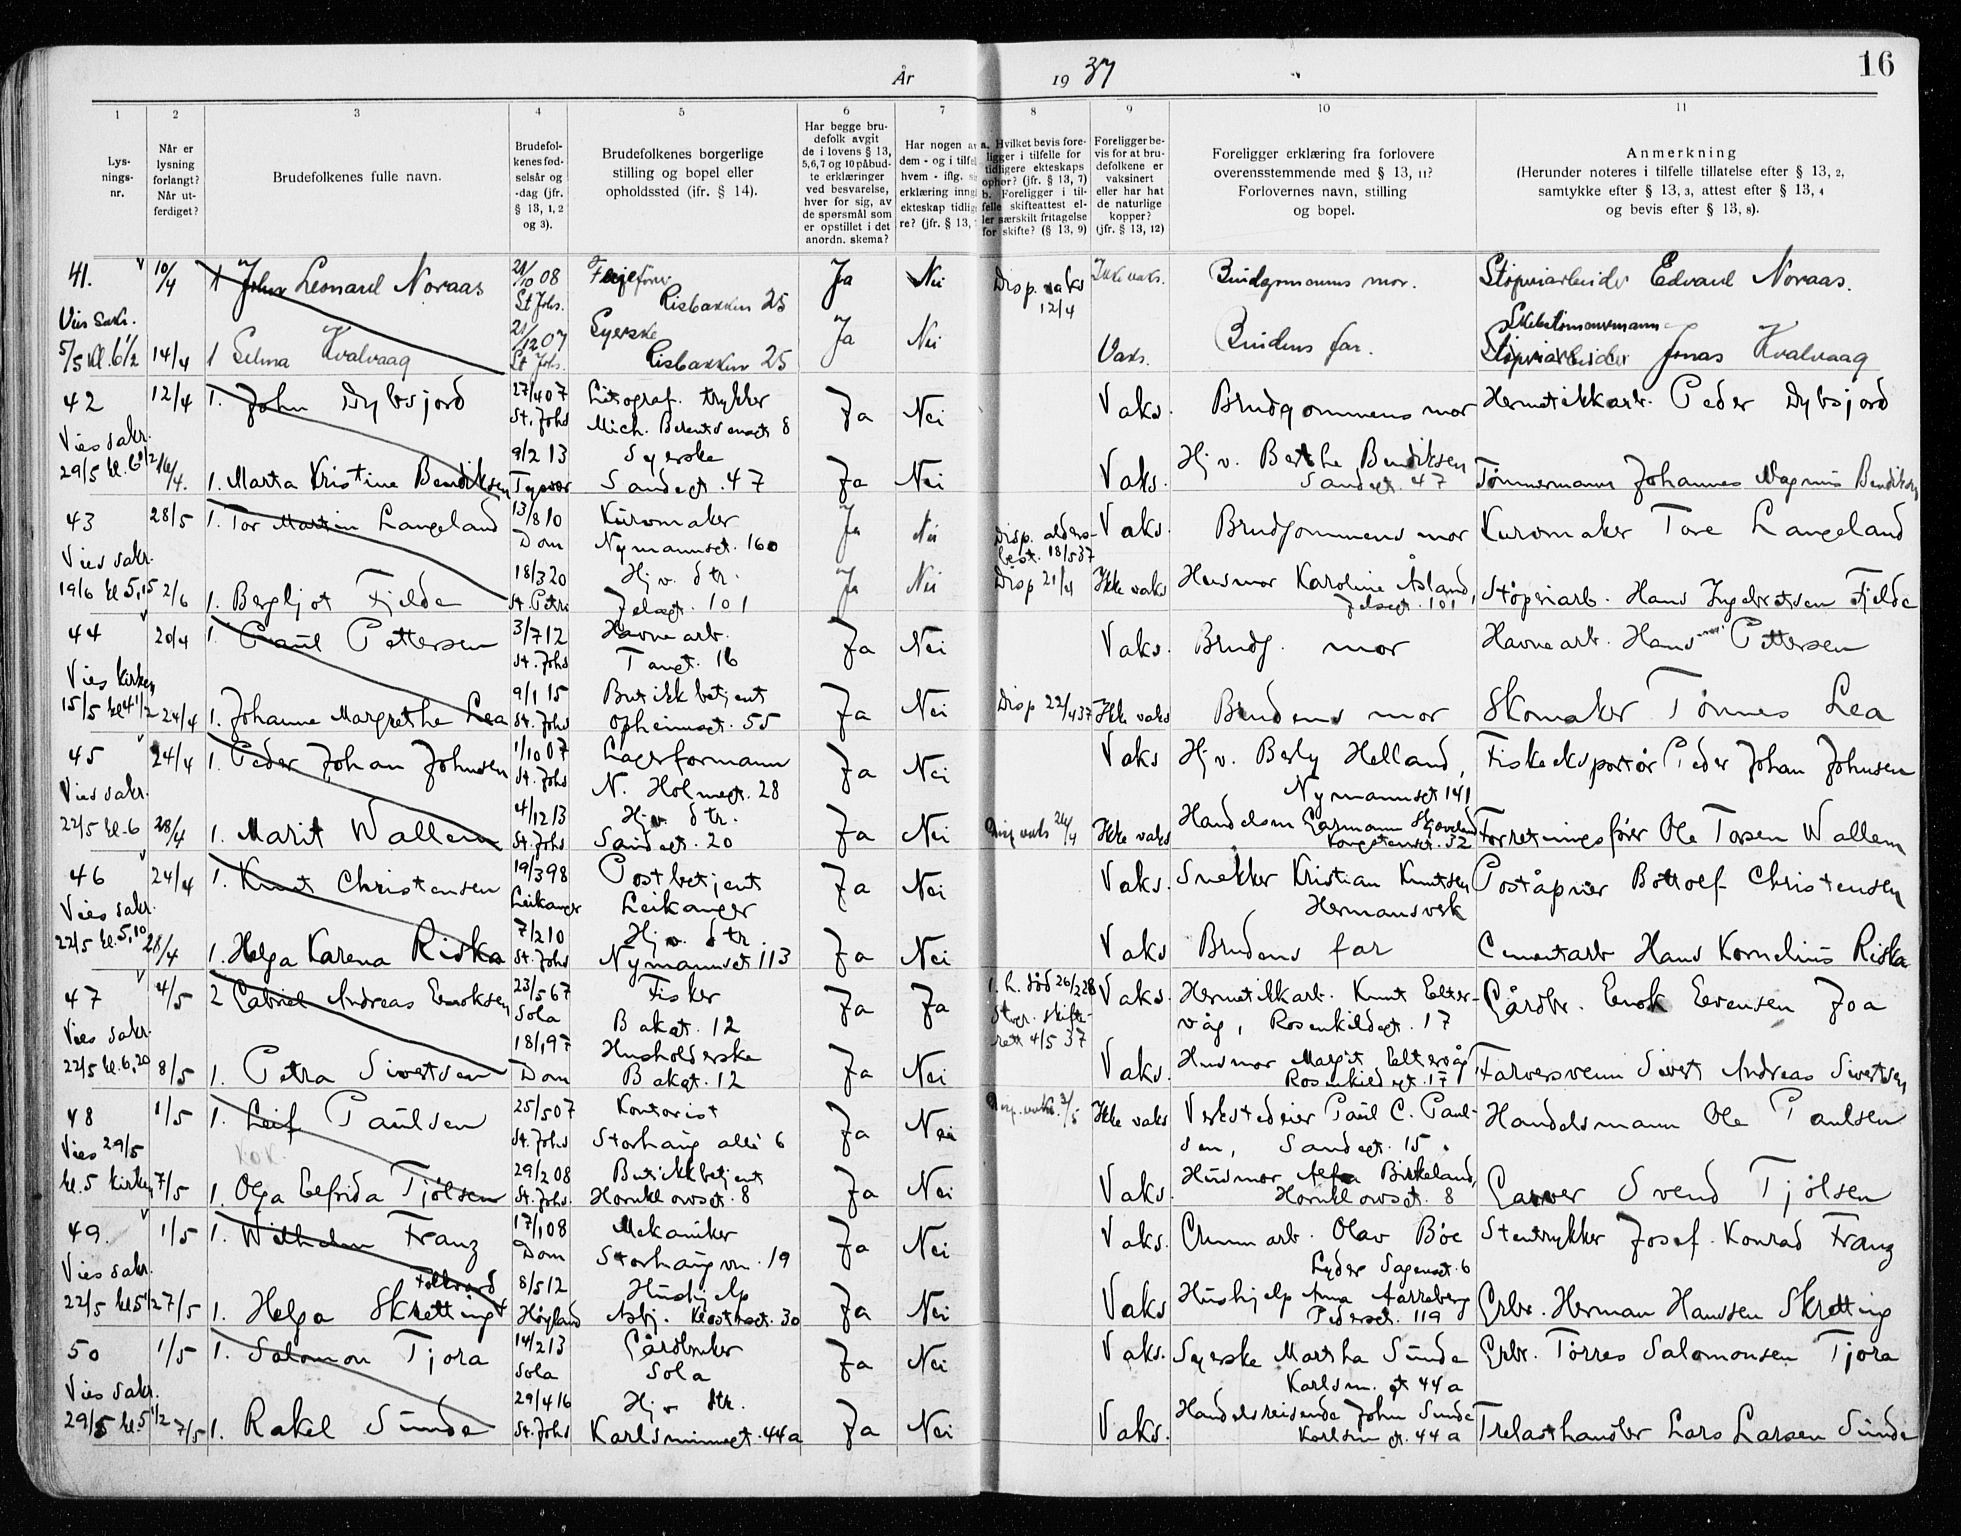 År 1937
16
1 2 3 4 5 6 7 8 9 10 11
Lysnings-nr.
Når er lysning forlangt? Når utferdiget?
Brudefolkenes fulle navn.
Brudefolkenes fødselsår og -dag (jfr. § 13, 1, 2 og 3).
Brudefolkenes borgerlige stilling og bopel eller opholdssted (ifr. § 14).
Har begge brudefolk avgit de i lovens § 13, 5, 6, 7 og 10 påbudte erklæringer ved besvarelse, hver for sig, av de spørsmål som er opstillet i det anordn. skema?
Har nogen av dem - og i tilfelle hvem - iflg.
erklæring
ekteskap tidligere? (jfr. § 13,
a. Hvilket bevis foreligger i tilfelle for tidligere ekteskaps ophør? (jfr. § 13, 7)
b. Foreligger i tilfelle skifteattest eller særskilt fritagelse for skifte? (§ 13, 9)
Foreligger bevis for at brudefolkene er vaksinert eller har hat de naturlige kopper? (jfr. § 13, 12)
Foreligger erklæring fra forlovere overensstemmende med § 13, 11?
Forlovernes navn, stilling og bopel.
Anmerkning
(Herunder noteres i tilfelle tillatelse efter § 13, 2, samtykke efter § 13, 3, attest efter § 13, 4 og bevis efter § 13, 8).
41. 10/4 1 John Leonard Noraas 21/10 08 St Johs. Risbakken 25 Ja Nei Disp. vaks 12/4 Ikke vaks. Brudgommens mor. Støperiarbeider Edvard Noraas.
Vies sakr. 5/5 kl. 6 1/2 14/4 1 Selma Kvalvaag 21/12 07 St Johs. Syerske Risbakken 25 Ja Nei Vaks. Brudens far. Støperiarbeider Jonas Kvalvaag
42 12/4 1. John Dybsjord 27/4 07 St. Johs Litograf. trykker Mich. Berentsensgt 8 Ja Nei Vaks. Brudgommens mor Hermetikkarb. Peder Dybsjord
Vies sakr. 29/5 kl. 6 1/2 16/4. 1. Marta Kristine Bendiksen 9/2 13 Tysvær Syerske Sandegt. 47 Ja Nei Vaks. Hj v. Berthe Bendiksen Sandegt. 47 Tømmermann Johannes Magnus Bendiksen
43 28/5 1. Tor Martin Langeland 13/8 10 Dom Kurvmaker Nymannsgt. 160 Ja Nei Disp. aldersbest. 18/5 37 Vaks. Brudgommens mor Kurvmaker Tore Langeland
Vies sakr. 19/6 kl 5,15 2/6 1. Bergljot Fjelde 18/3 20 St. Petri Hj v. dtr. Jelsagt. 101 Ja Nei Disp 21/4 Ikke vaks Husmor Karoline Åsland, Jelsagt. 101 Støperiarb. Hans Ingebretsen Fjelde
44 20/4 1. Paul Pettersen 3/7 12 St. Johs Havnearb. Tangt. 16 Ja Nei Vaks. Brudg. mor Havnearb. Hans Pettersen
Vies kirken 15/5 kl 4 1/2 24/4 1. Johanne Margrethe Lea 9/1 15 St. Johs Butikkbetjent Opheimsgt. 55 Ja Nei Disp 22/4 37 Ikke vaks Brudens mor Skomaker Tønnes Lea
45 24/4 1. Peder Johan Johnsen 1/10 07 St. Johs Lagerformann N. Holmegt. 28 Ja Nei Vaks Hj v. Berly Helland, Nymannsgt 141 Fiskeeksportør Peder Johan Johnsen
Vies sakr. 22/5 kl. 6 28/4 1. Marit Wallem 4/12 13 St. Johs Hj v. dtr. Sandegt. 20 Ja Nei Disp vaks 26/4 Ikke vaks Handelsm 52 Forretningsfører Ole Torsen Wallem
46 24/4 1. Knut Christensen 19/3 98 Leikanger Postbetjent Leikanger Ja Nei Vaks. Snekker Kristian Knutsen Hermansverk Poståpner Bottolf Christensen
Vies sakr. 22/5 kl. 5,10 28/4 1. Helga Karena Riska 7/2 10 St. Johs Hj v. dtr. Nymannsgt 113 Ja Nei Vaks Brudens far Cementarb Hans Kornelius Riska
47 4/5 2 Gabriel Andreas Enoksen 23/5 67 Sola Fisker Bakgt. 12 Ja Ja 1. h. død 26/2 28 Stvgr. skifterett 4/5 37 Vaks. Hermetikkarb. Knut Eltervåg, Rosenkildegt. 17 Gårdbr. Enok Evensen Joa
Vies sakr. 22/5 kl. 6,20 8/5 1. Petra Sivertsen 18/1 97 Dom Husholderske Bakgt. 12 Ja Nei Vaks. Husmor Margit Eltervåg, Rosenkildegt. 17 Farversvenn Sivert Andreas Sivertsen
48 1/5 1. Leif Paulsen 25/5 07 St. Johs Kontorist Storhaug allé 6 Ja Nei Disp. vaks. 3/5 Ikke vaks Verkstedeier Paul C. Paulsen, Sandegt. 15. Handelsmann Ole Paulsen
Vies 29/5 kl. 5 kirken 7/5 1. Olga Elfrida Tjølsen 29/2 08 St. Johs. Butikkbetjent Hornklovsgt. 8 Ja Nei Vaks. Husmor Birkeland, Hornklovsgt. 8 Garver Svend Tjølsen
49. 1/5 1. Wilhelm Franz 17/1 08 Dom Mekaniker Storhaugvn. 19 Ja Nei Vaks. Olav Bøe Lyder Sagensgt. 6 Stentrykker Josef Konrad Franz
Vies sakr. 22/5 kl 5 1/2 7/5 1. Helga Skretting 8/5 12 Høyland Hushjelp Asbj. Klostersgt. 30 Ja Nei Vaks Hushjelp Anna Aarreberg Pedersgt. 119 Grbr. Herman Hanssen Skretting
50 1/5 1. Salomon Tjora 14/2 13 Sola Gårdbruker Sola Ja Nei Vaks. Syerske Martha Sunde Karlsm. gt 44 a Grbr. Tørres Salomonsen Tjora
Vies sakr. 29/5 kl. 5 1/2 7/5 1. Rakel Sunde 29/4 16 St. Johs Hj v dtr. Karlsminnegt. 44a Ja Nei Vaks. Handelsreisende John Sunde Karlsm gt. 44 a Trelasthandler Lars Larsen Sunde